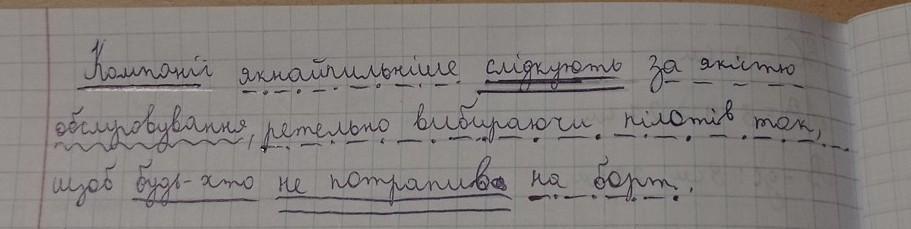 Компанії якнайпильніше слідкують за якістю
обслуговування, ретельно вибираючи пілотів так,
щоб будь-хто не потрапив на борт.